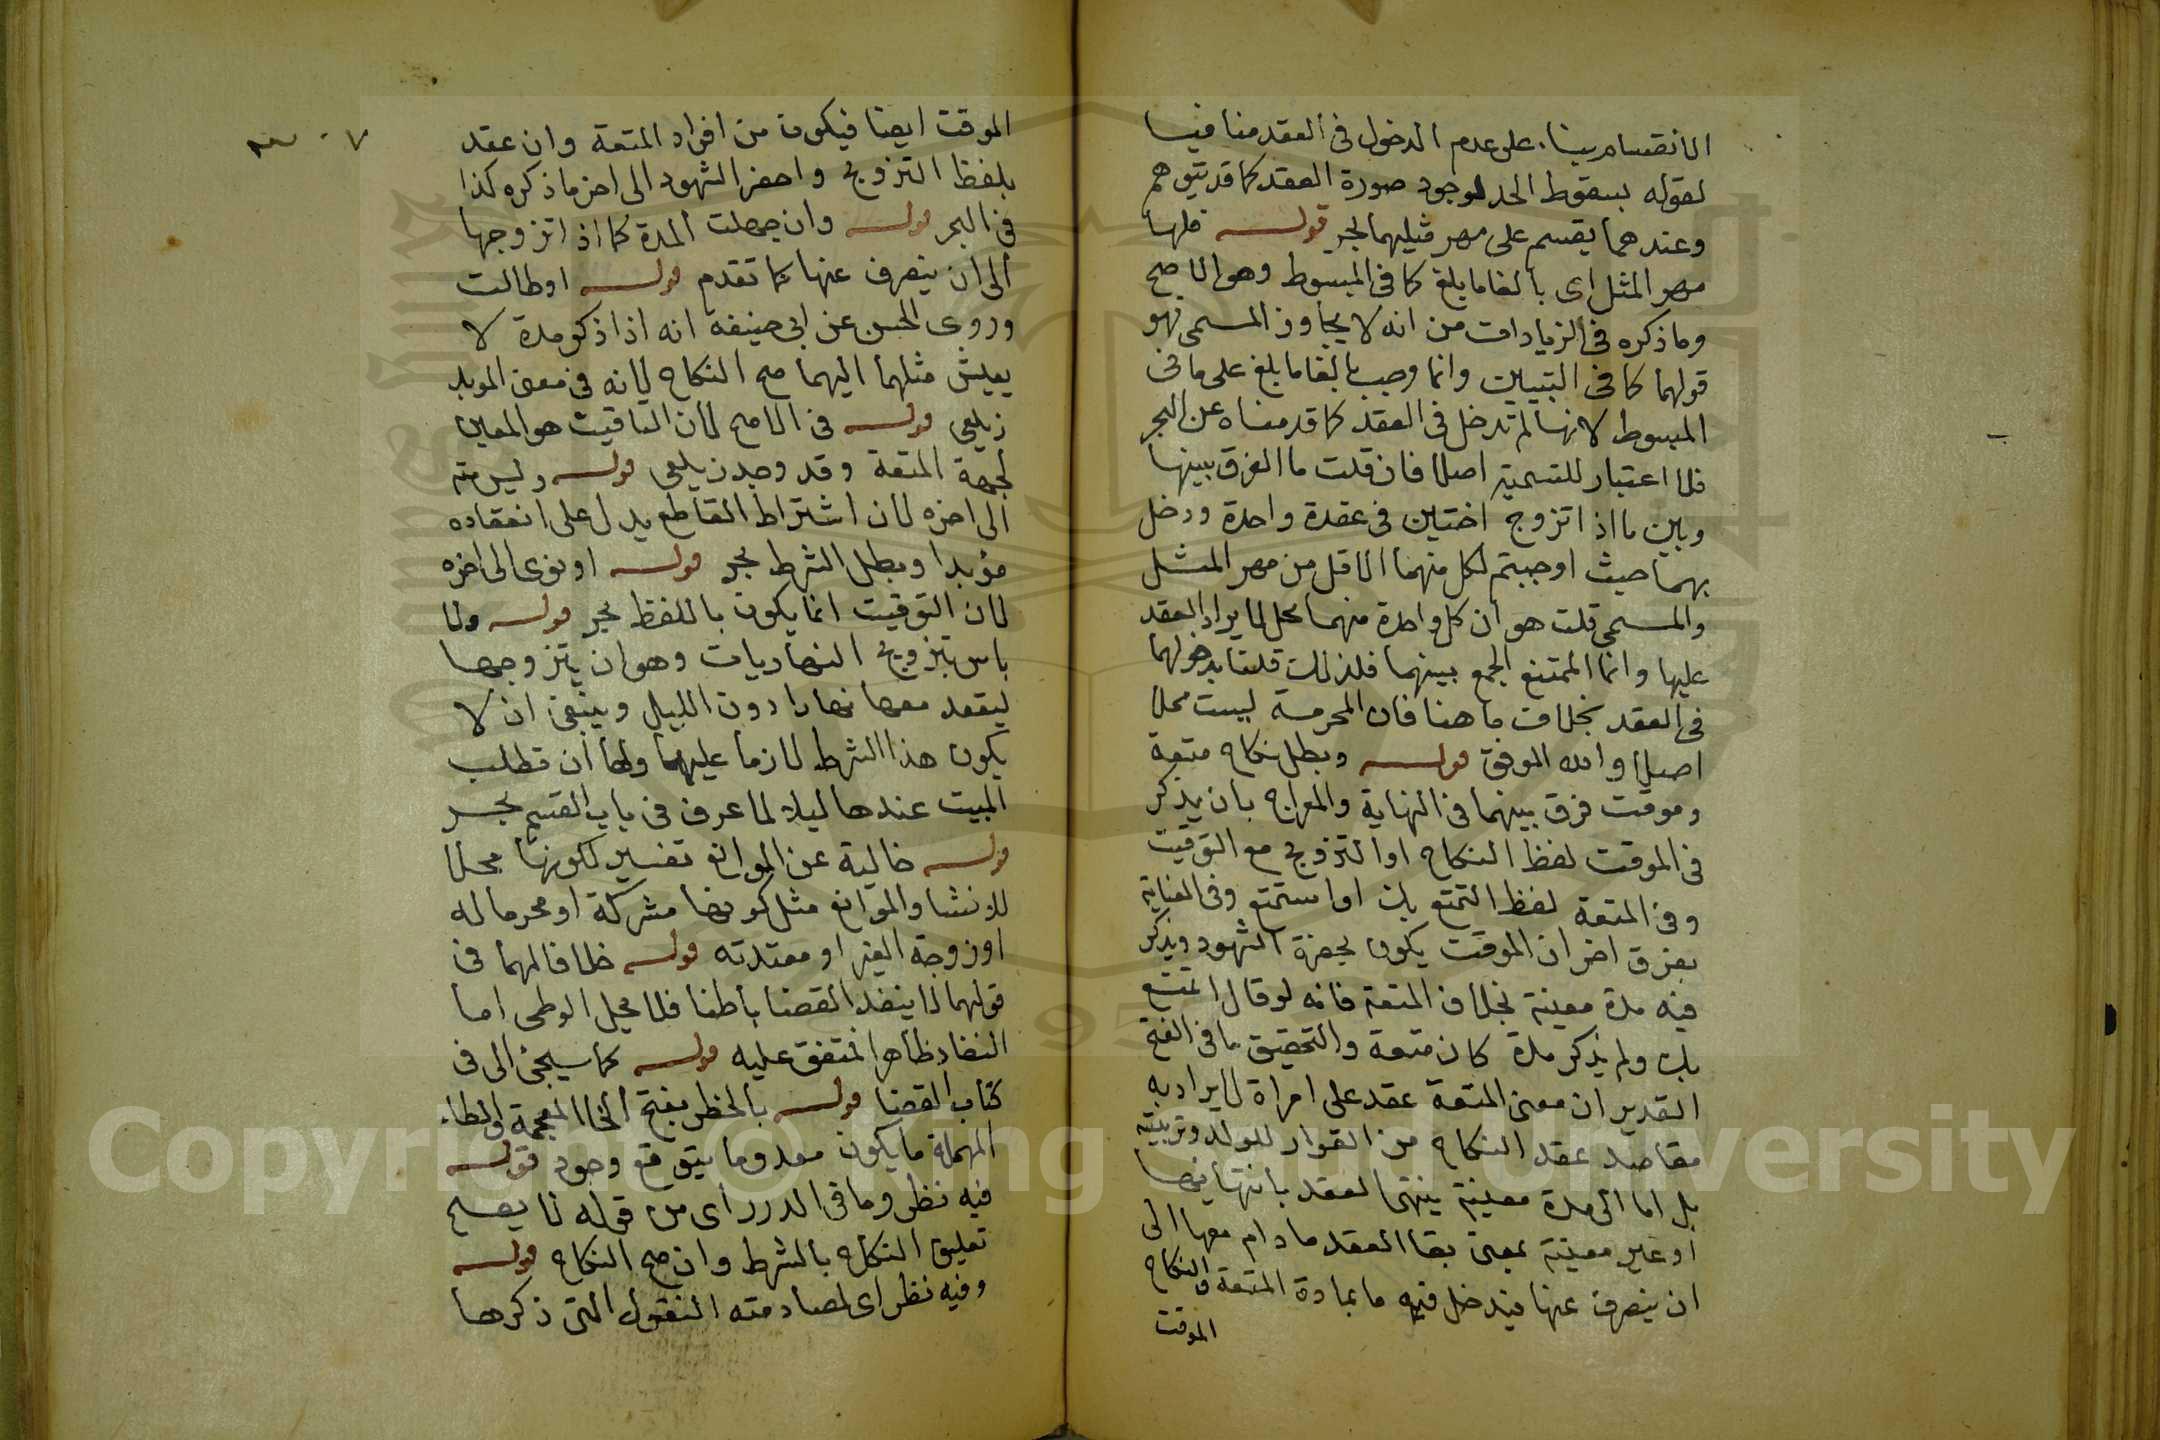 الانقسام بناء على عدم الدخول فى العقد منافيا
لقوله بسقوط الحد لوجود صورة العقد كما قد يتوهم
وعندهما يقسم على مهر مثليهما بحر قوله فلها
مهر المثل اى بالغا ما بلغ كما فى المبسوط وهو الاصح
وما ذكره فى الزيادات من انه لا يجاوز المسمى فهو
قولهما كما فى التبيين وانما وجب بالغا ما بلغ على ما فى
المبسوط لانها لم تدخل فى العقد كما قدمناه عن البحر
فلا اعتبار للتسمية اصلا فان قلت ما الفرق بينها
وبين ما اذا تزوج اختين فى عقدة واحدة ودخل
بهما حيث اوجبتم لكل منهما الاقل من مهر المثل
والمسمى قلت هو ان كل واحدة منهما محل لايراد العقد
عليها وانما الممتنع الجمع بينهما فلذلك قلنا بدخولهما
فى العقد بخلاف ما هنا فان المحرمة ليست محلا
اصلا والله الموفق قوله وبطل نكاح متعة
وموقت فرق بينهما فى النهاية والمعراج بان يذكر
فى الموقت لفظ النكاح او التزويج مع التوقيت
وفى المتعة لفظ التمتع بك او استمتع وفى العناية
بفرق اخر ان الموقت يكون بحضرة الشهود ويذكر
فيه مدة معينة بخلاف المتعة فانه لو قال اتمتع
بك ولم يذكر مدة كان متعة والتحقيق ما فى الفتح
القدير ان معنى المتعة عقد على امراة لا يراد به
مقاصد عقد النكاح من القرار للولد وتربيته
بل اما الى مدة معينة ينتهى العقد بانتهائها
او غير معينة بمعنى بقا العقد ما دام معها الى
ان ينصرف عنها فيدخل فيه ما بمادة المتعة والنكاح
الموقت
الموقت ايضا فيكون من افراد المتعة وان عقد
بلفظ التزويج واحضر الشهود الى اخر ما ذكره كذا
فى البحر قوله وان جهلت المدة كما اذا تزوجها
الى ان ينصرف عنها كما تقدم قوله او طالت
وروى الحسن عن ابى حنيفة انه اذا ذكر مدة لا
يعيش مثلهما اليهما صح النكاح لانه فى معنى الموبد
زيلعى قوله فى الاصح لان التاقيت هو المعين
لجهة المتعة وقد وجد زيلعى قوله وليس منه
الى اخره لان اشتراط القاطع يدل على انعقاده
مؤبدا وبطل الشرط بحر قوله او نوى الى اخره
لان التوقيت انما يكون باللفظ بحر قوله ولا
باس بتزويج النهاريات وهو ان يتزوجها
ليقعد معها نهارا دون الليل وينبغى ان لا
يكون هذا الشرط لازما عليها ولها ان تطلب
المبيت عندها ليلا لما عرف فى باب القسم بحر
قوله خالية عن الموانع تفسير لكونها محلا
للانشا والموانع مثل كونها مشركة او محرما له
او زوجة الغير او معتدته قوله خلافا لهما فى
قولهما لا ينفذ القضا باطنا فلا يحل الوطى اما
النفاد ظاهرا متفق عليه قوله كما سيجئ الى فى
كتاب القضا قوله بالخطر بفتح الخا المعجمة والطاء
المهملة ما يكون معدوما يتوقع وجوده قوله
فيه نظر وما فى الدرر اى من قوله لا يصح
تعليق النكاح بالشرط وان صح النكاح قوله
وفيه نظر اى لمصادمته النقول التى ذكرها
Copyright © King Saud University